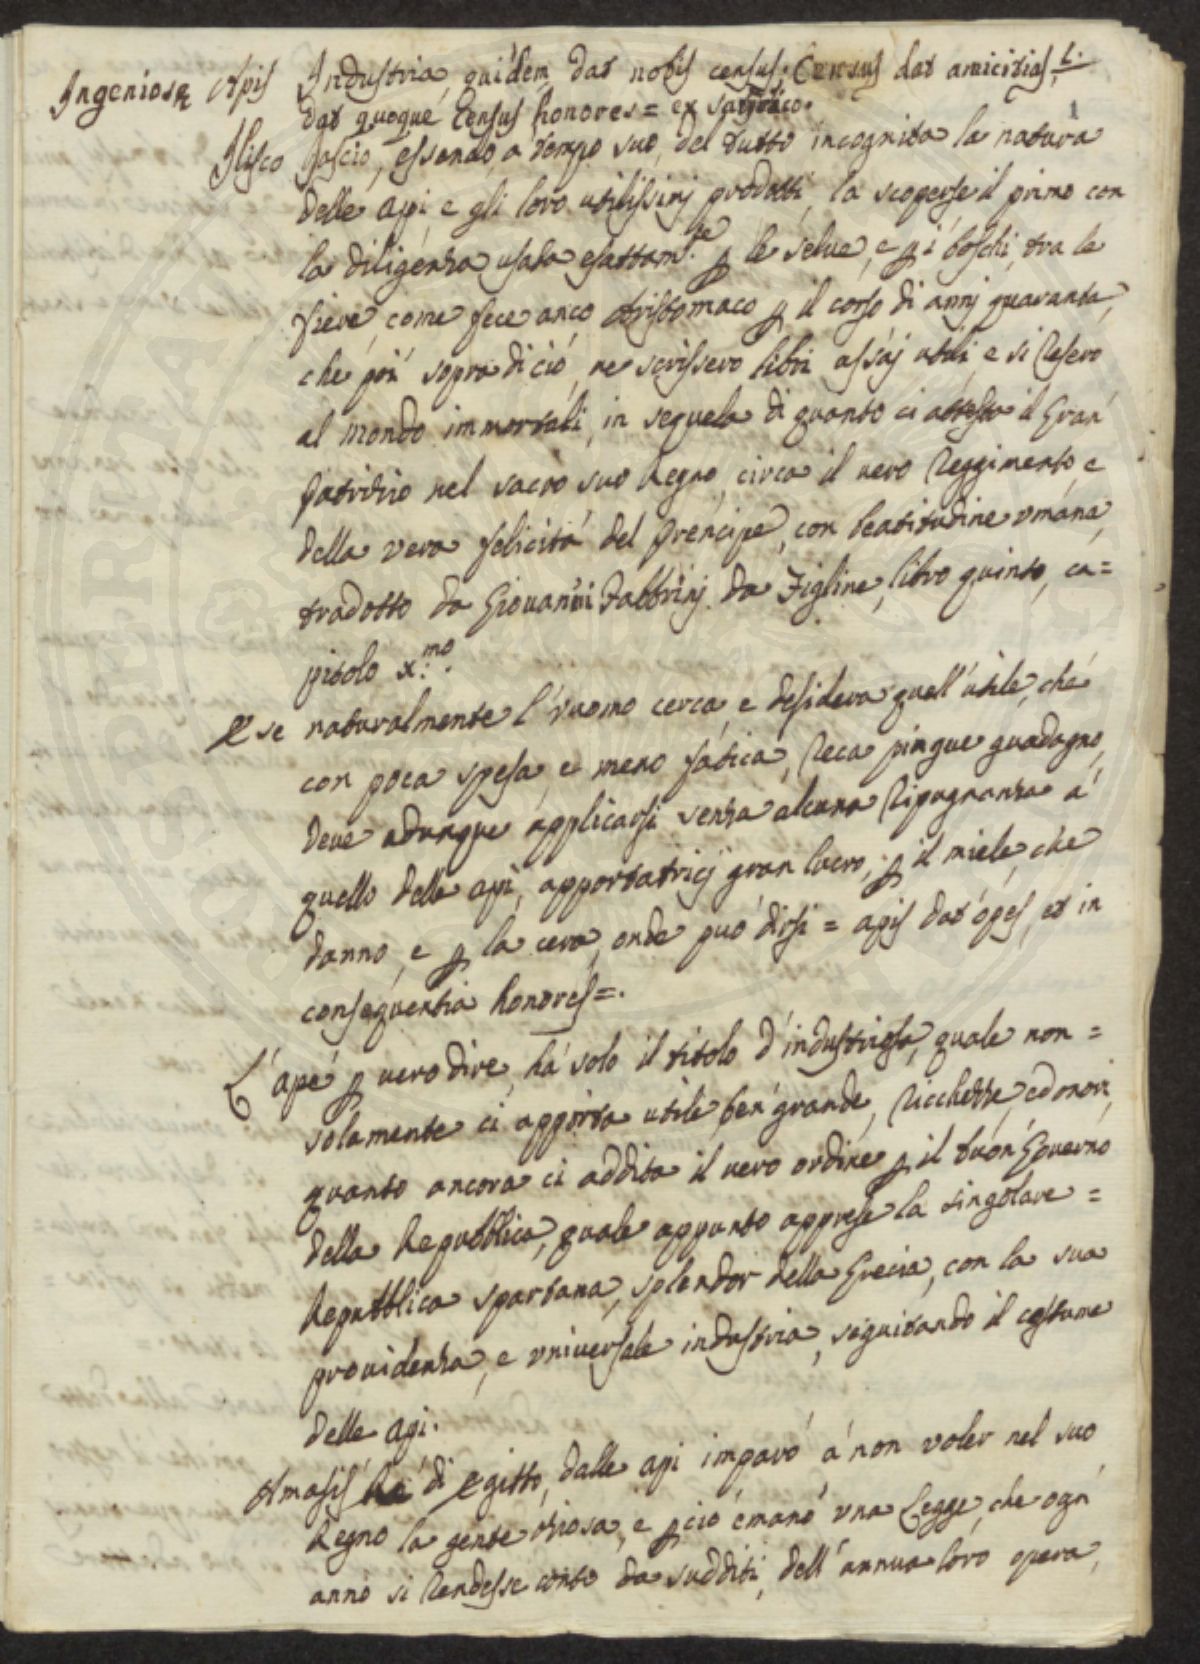 Ingeniosæ Apis Industria, quidem dat nobis census: Census dat amicitias, L.
1
dat quoque Census honores = ex
Ilisco fascio, essendo, a tempo suo, del tutto incognita la natura
delle api, e gli loro utilissimj prodotti, la scoperse il primo con
la diligenza usata esattam.te ꝑ le selve, e ꝑ i boschi, tra le
fiere, come fece anco Aristomaco ꝑ il corso di annj quaranta,
che poi sopra di ciò, ne scrissero libri assaj utili, e si resero
al mondo immortali, in sequela di quanto ci attesta il Gran
Patritio nel sacro suo Regno, circa il vero Reggimento, e
della vera felicità del Prencipe, con beatitudine vmana,
tradotto da Giovanni Fabbrinj da Figline, libro quinto, ca=
pitolo x.mo.
E se naturalmente l'vuomo cerca, e desidera quell'utile, che
con poca spesa, e meno fatica, reca pingue guadagno,
deve adunque applicarsi senza alcuna ripugnanza à
quello delle api, apportatricj gran lucro, ꝑ il miele, che
danno, e ꝑ la cera, onde può dirsi = apis dat opes, et in
consequentia honores =.
L'ape ꝑ vero dire, hà solo il titolo d'industriosa, quale non =
solamente ci apporta utile ben grande, ricchezze, ed onori,
quanto ancora ci addita il vero ordine ꝑ il buon Governo
della Repubblica, quale appunto apprese la singolare =
Repubblica spartana, splendor della Grecia, con la sua
providenza, e vniversale industria, seguitando il costume
delle api.
Amasis Rè di Egitto, dalle api imparò à non voler nel suo
Regno la gente otiosa, e ꝑ ciò emanò vna Legge, che ogn'
anno si rendesse conto da sudditi, dell'annua loro opera,